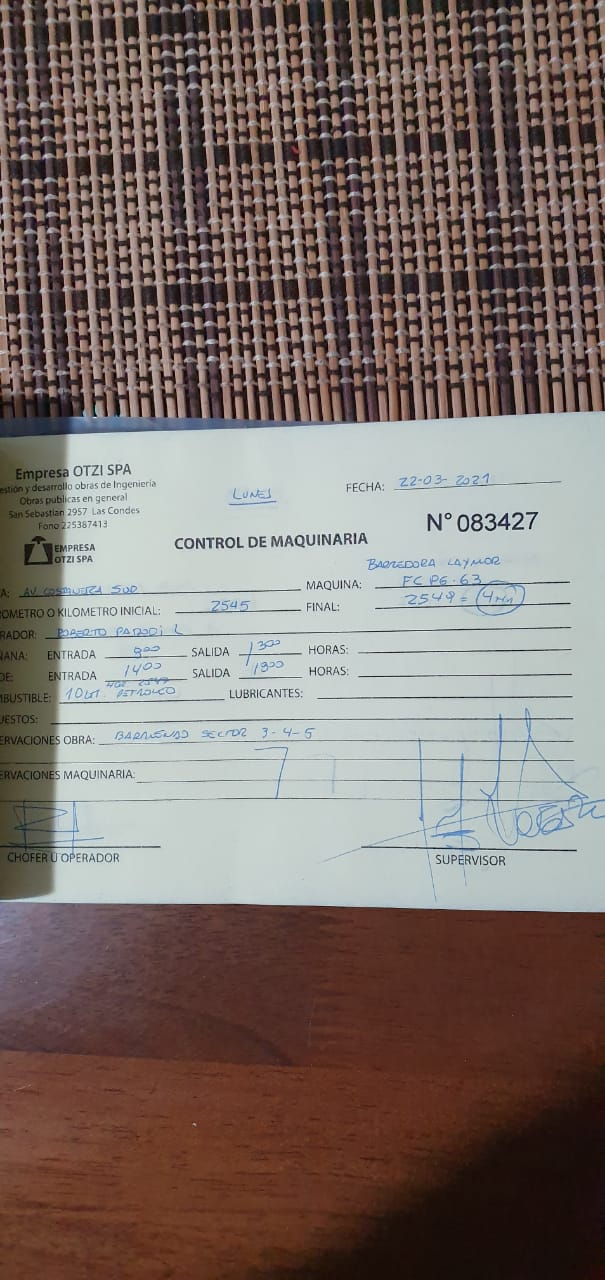 Empresa OTZI SPA
estión y desarrollo obras de Ingeniería
Obras publicas en general
San Sebastian 2957 Las Condes
Fono 225387413
EMPRESA
OTZI SPA
LUNES
FECHA: 22-03-2021
N° 083427
CONTROL DE MAQUINARIA
BARREDORA LAYMOR
A: AV. COSTANERA SUR MAQUINA: FC PG-63
ROMETRO O KILOMETRO INICIAL: 2545 FINAL: 2549 =
RADOR: ROBERTO PARODI L
ANA: ENTRADA 900 SALIDA 1300 HORAS:
DE: ENTRADA 1400 SALIDA 1800 HORAS:
MBUSTIBLE: 10 LT. PETROLEO LUBRICANTES:
UESTOS:
ERVACIONES OBRA: BARRIENDO SECTOR 3-4-5
ERVACIONES MAQUINARIA:
CHOFER U OPERADOR
SUPERVISOR